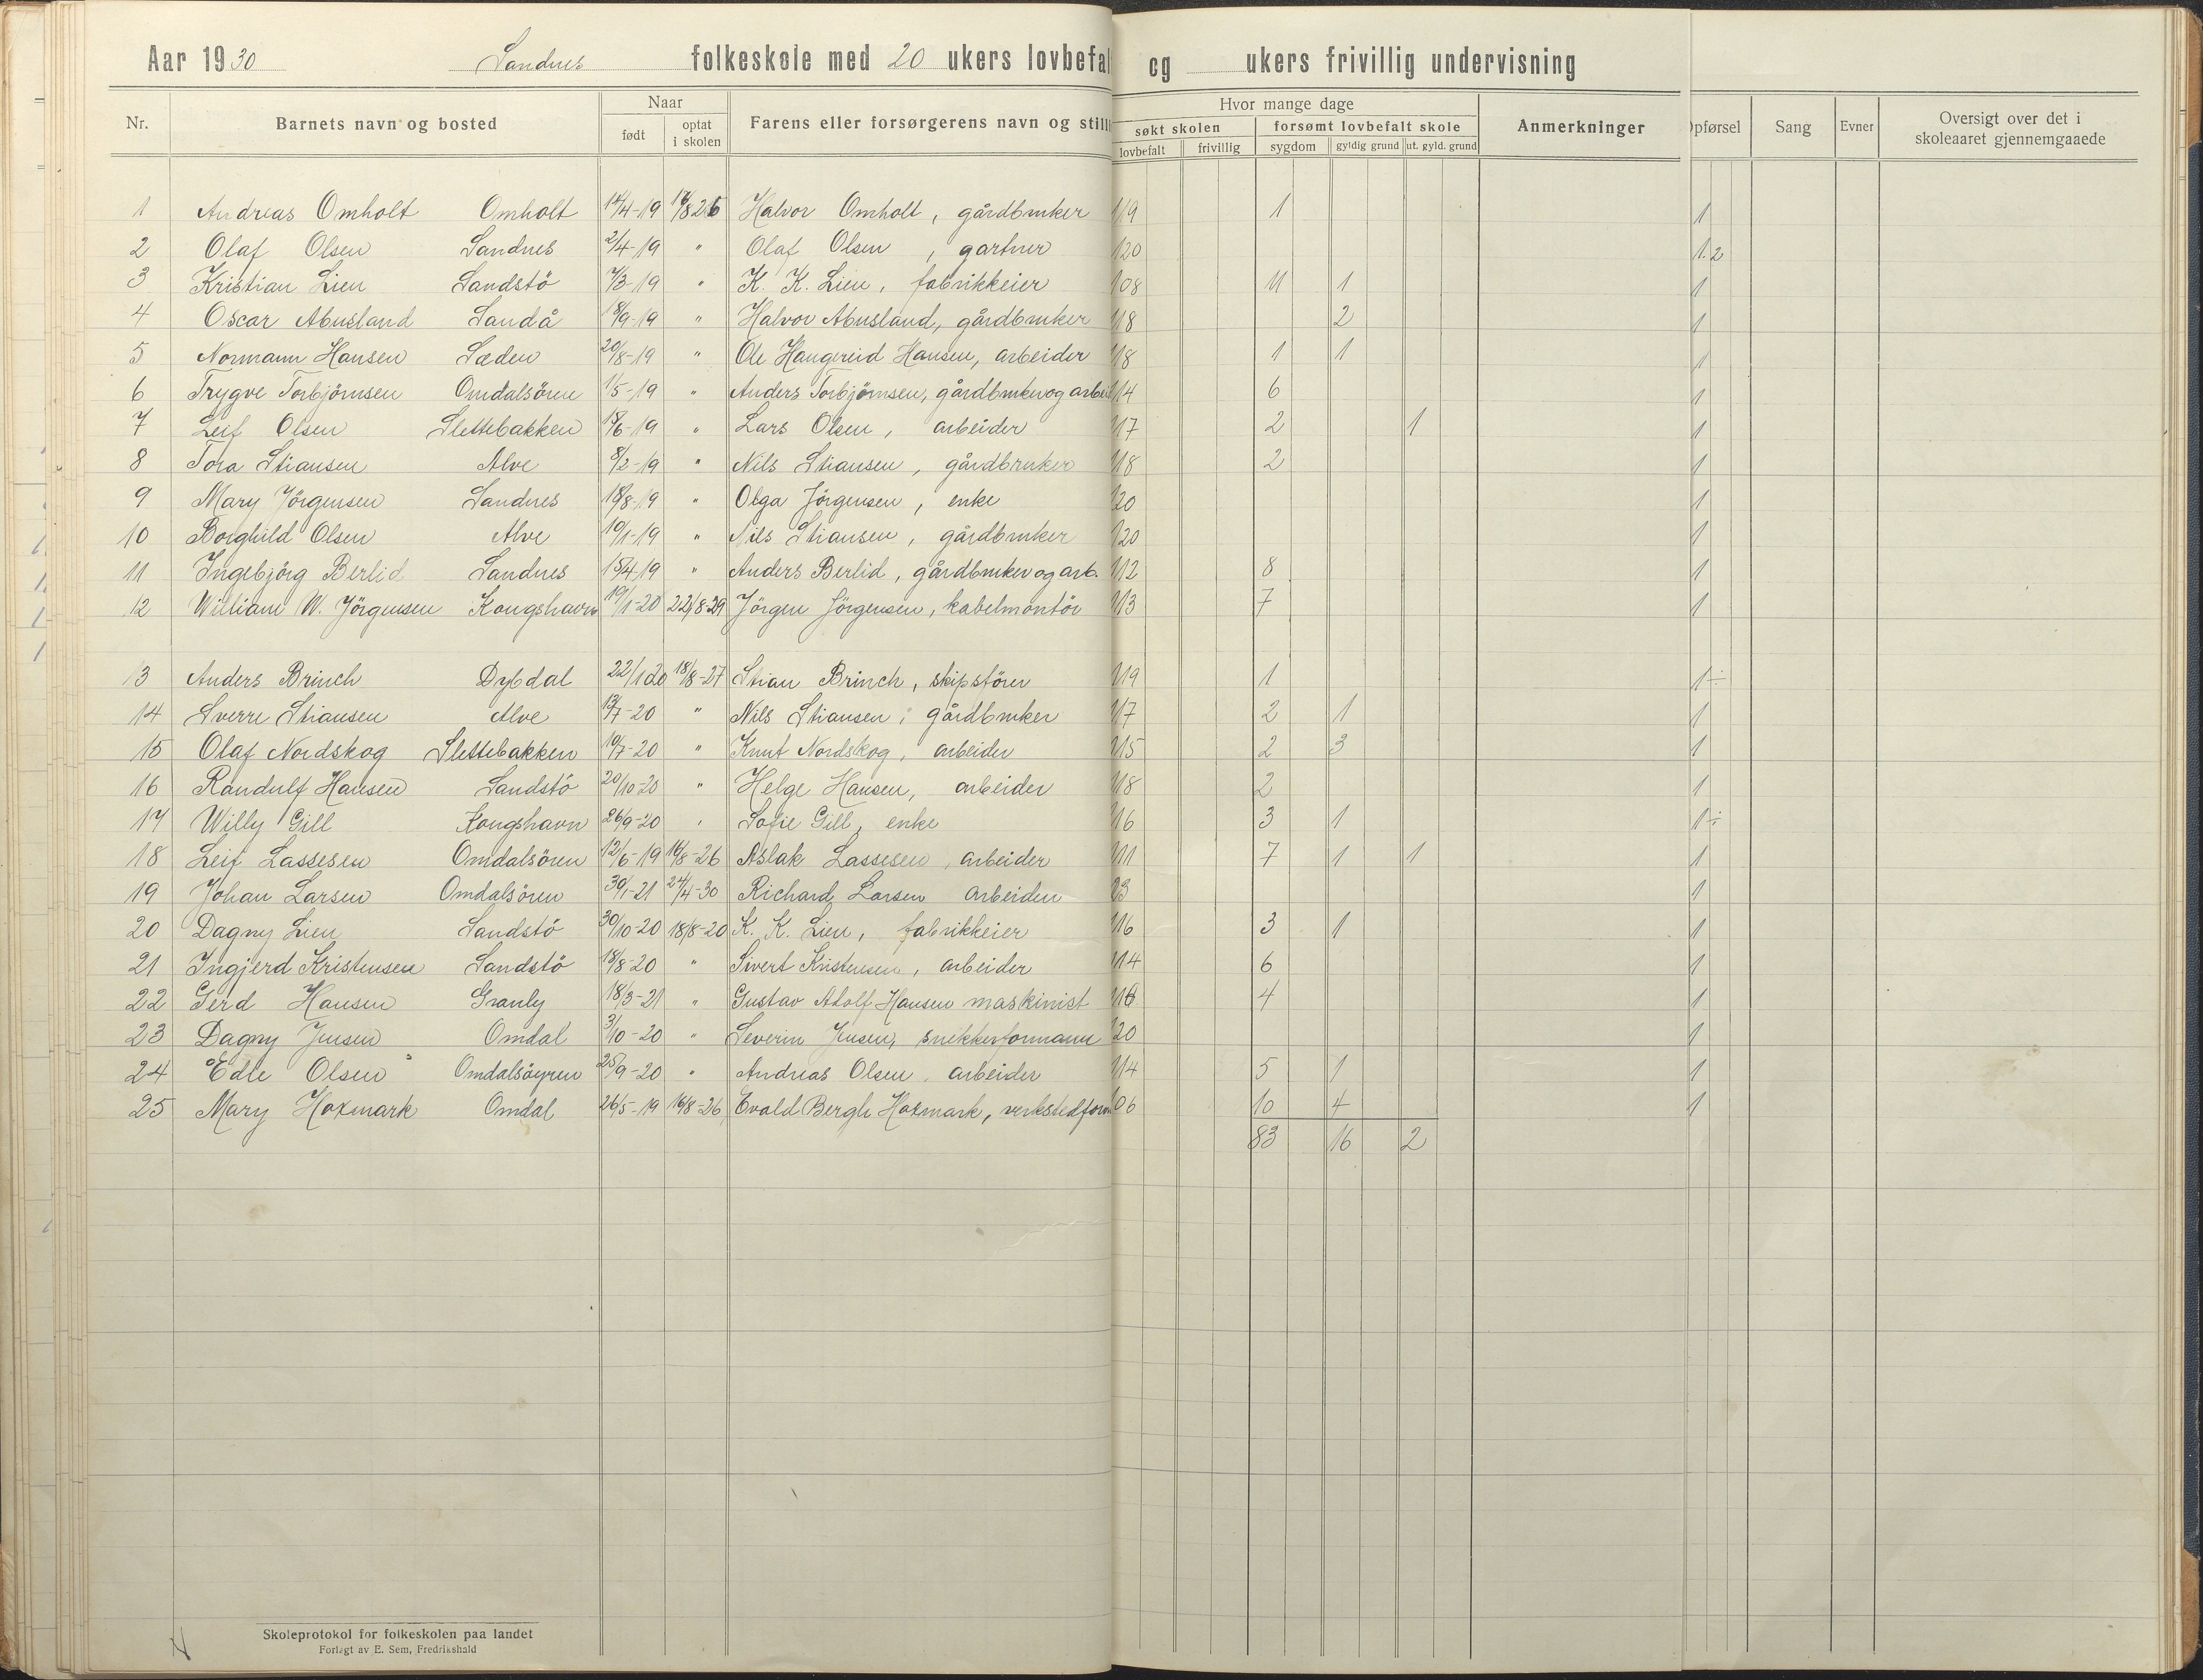 Aar 1930 Sandnes folkeskole med 20 ukers lovbefal og ukers frivillig undervisning
Nr. Barnets navn og bosted Naar født optat i skolen Farens eller forsørgerens navn og still Hvor mange dage søkt skolen lovbefalt frivillig forsømt lovbefalt skole sygdom gyldig grund ut. gyld. grund Anmerkninger Opførsel Sang Evner Oversigt over det i skoleaaret gjennemgaaede
1 Andreas Omholt Omholt 14/4-19 17/8 26 Halvor Omholt, gårdbruker 119 1 1
2 Olaf Olsen Sandnes 2/4-19 " Olaf Olsen, gartner 120 1.2
3 Kristian Lien Sandstö 7/3-19 " K. K. Lien, fabrikkeier 108 11 1 1
4 Oscar Abusland Sandå 18/9-19 " Halvor Abusland, gårdbruker 118 2 1
5 Normann Hansen Sæden 20/8-19 " Ole Haugereid Hansen, arbeider 118 1 1 1
6 Trygve Torbjörnsen Omdalsören 1/5-19 " Anders Torbjörnsen, gårdbruker og arbeid 114 6 1
7 Leif Olsen Slettebakken 18/6-19 " Lars Olsen, arbeider 117 2 1 1
8 Tora Stiansen Alve 8/2-19 " Nils Stiansen, gårdbruker 118 2 1
9 Mary Jörgensen Sandnes 18/8-19 " Olga Jörgensen, enke 120 1
10 Borghild Olsen Alve 10/1-19 " Nils Stiansen, gårdbruker 120 1
11 Ingebjörg Berlid Sandnes 15/4-19 " Anders Berlid, gårdbruker og arb. 112 8 1
12 William W. Jörgensen Kongshavn 19/1-20 22/8-29 Jörgen Jörgensen, kabelmontör 113 7 1
13 Anders Brinch Dybdal 22/1 20 18/8-27 Stian Brinch, skipsförer 119 1 1÷
14 Sverre Stiansen Alve 13/7-20 " Nils Stiansen, gårdbruker 117 2 1 1
15 Olaf Nordskog Slettebakken 10/7-20 " Knut Nordskog, arbeider 115 2 3 1
16 Randulf Hansen Sandstö 20/10-20 " Helge Hansen, arbeider 118 2 1
17 Willy Gill Kongshavn 26/9-20 " Sofie Gill, enke 116 3 1 1÷
18 Leif Lassesen Omdalsören 12/6-19 16/8-26 Aslak Lassesen, arbeider 111 7 1 1 1
19 Johan Larsen Omdalsören 30/1-21 24/4-30 Richard Larsen arbeider 23 1
20 Dagny Lien Sandstö 30/10-20 18/8-20 K. K. Lien, fabrikkeier 116 3 1 1
21 Ingjerd Kristensen Sandstö 18/8-20 " Sivert Kristensen, arbeider 114 6 1
22 Gerd Hansen Granly 18/3-21 " Gustav Adolf Hansen maskinist 116 4 1
23 Dagny Jensen Omdal 3/10-20 " Severin Jensen, snekkerformann 120 1
24 Edle Olsen Omdalsöyren 25/9-20 " Andreas Olsen, arbeider 114 5 1 1
25 Mary Hoxmark Omdal 26/5-19 16/8-26 Evald Bergh Hoxmark, verkstedform 106 10 4 1
83 16 2
Skoleprotokol for folkeskolen paa landet
Forlagt av E. Sem, Fredrikshald